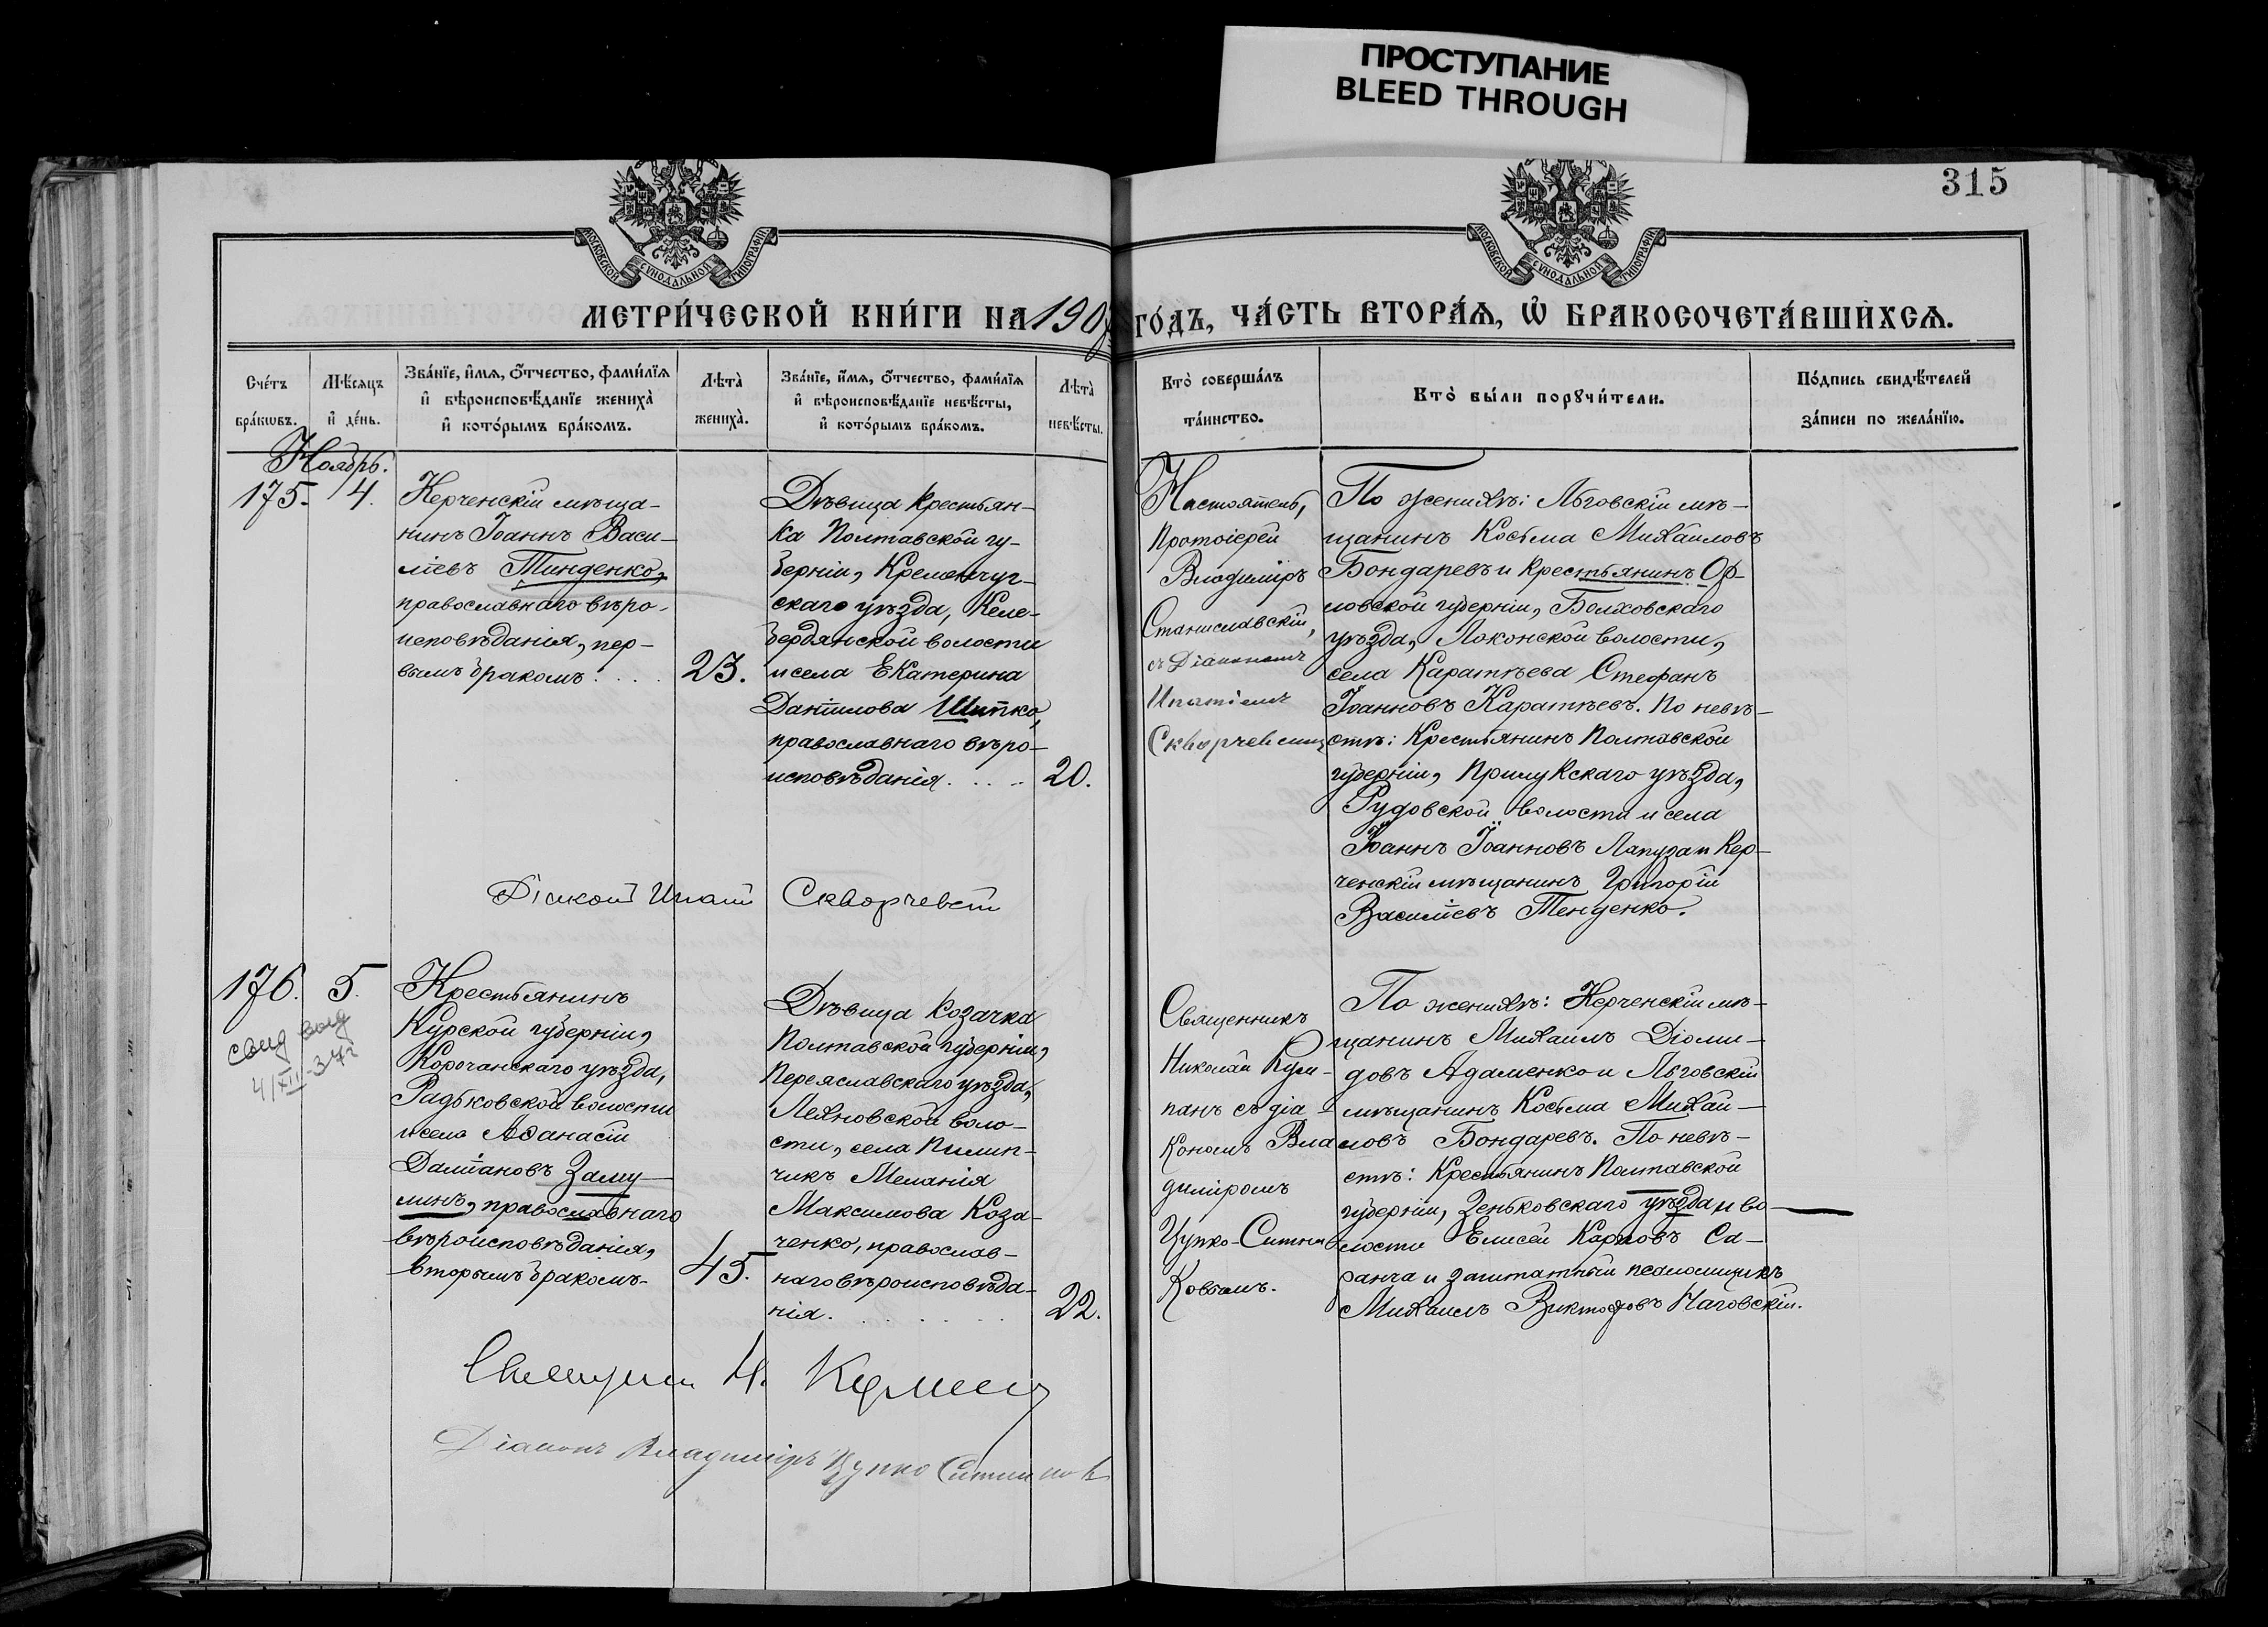 ПРОСТУПАНИЕ
BLEED THROUGH
315
МОСКОВСКОЙ СѴНОДАЛЬНОЙ ТИПОГРАФІИ
МОСКОВСКОЙ СѴНОДАЛЬНОЙ ТИПОГРАФІИ
МЕТРИ́ЧЕСКОЙ КНИ́ГИ НА 190
ГО́ДЪ, ЧА́СТЬ ВТОРА́Ѧ, Ѽ БРАКОСОЧЕТА́ВШИХСѦ.
Сче́тъ
бра́кѡвъ.
Мѣ́сяцъ
и҆ де́нь.
Зва́нїе, и҆́мѧ, ѻ҆́тчество, фами́лїѧ
и҆ вѣроисповѣ́данїе жениха̀
и҆ кото́рымъ бра́комъ.
Лѣта̀
жениха̀.
Зва́нїе, и҆́мѧ, ѻ҆́тчество, фами́лїѧ
и҆ вѣроисповѣ́данїе невѣ́сты,
и҆ кото́рымъ бра́комъ.
Лѣта̀
невѣ́сты.
Кто̀ соверша́лъ
та́инство.
Кто̀ бы́ли порꙋчи́тели.
По́дпись свидѣ́телей
за́писи по жела́нїю.
Ноябрь.
175.
4.
Керченскій мѣща-
нинъ Іоаннъ Васи-
ліевъ Тинденко,
православнаго вѣро-
исповѣданія, пер-
вымъ бракомъ . . . .
23.
Дѣвица крестьян-
ка Полтавской гу-
берніи, Кременчуг-
скаго уѣзда, Келе-
бердянской волости
и села Екатерина
Даніилова Шипко,
православнаго вѣро-
исповѣданія. . . .
20.
Настоятель,
Протоіерей
Владиміръ
Станиславскій,
съ Діакономъ
Ипатіемъ
По женихѣ: Льговскій мѣ-
щанинъ Косьма Михаиловъ
Бондаревъ и крестьянинъ Ор-
ловской губерніи, Болховскаго
уѣзда, Локонской волости,
села Каратѣева Стефанъ
Іоанновъ Каратѣевъ. По невѣ-
стѣ: Крестьянинъ Полтавской
губерніи, Прилукскаго уѣзда,
Рудовской волости и села
Іоаннъ Іоанновъ Лапуза и Кер-
ченскій мѣщанинъ Григорій
Василіевъ Тенденко.
176.
5.
Крестьянинъ
Курской губерніи,
Корочанскаго уѣзда,
Радьковской волости
и села Аѳанасій
Даміановъ Заму-
линъ, православнаго
вѣроисповѣданія,
вторымъ бракомъ
45.
Дѣвица козачка
Полтавской губерніи,
Переяславскаго уѣзда,
Леляновской воло-
сти, села Пилип-
чикъ Меланія
Максимова Коза-
ченко, православ-
наго вѣроисповѣда-
нія. . . . . . .
22.
Священникъ
Николай Кум-
панъ съ діа-
кономъ Вла
диміромъ
Цупко-Ситни
ковымъ.
По женихѣ: Керченскій мѣ-
щанинъ Михаилъ Діоми-
довъ Адаменко и Льговскій
мѣщанинъ Косьма Михаи-
ловъ Бондаревъ. По невѣ-
стѣ: Крестьянинъ Полтавской
губерніи, Зеньковскаго уѣзда и во-
лости Елисей Карповъ Са-
ранча и заштатный псаломщикъ
Михаилъ Викторовъ Наговскій.
Діаконъ Владиміръ Цупко Ситников